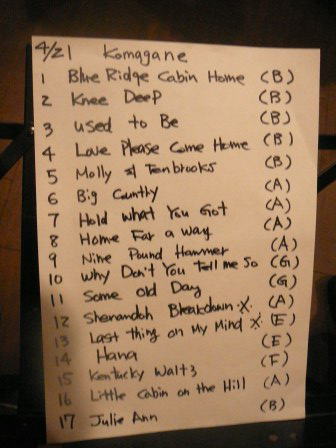 4/21 Komagane
1 Blue Ridge Cabin Home (B)
2 Knee Deep (B)
3 used to Be (B)
4 Love Please Come Home (B)
5 Molly & Tenbrooks (B)
6 Big Country (A)
7 Hold What You Got (A)
8 Home Far a way (A)
9 Nine Pound Hammer (A)
10 Why Don't You Tell me So (G)
11 Some old Day (G)
12 Shenandoh Breakdown ※ (A)
13 Last thing on My Mind ※ (E)
14 Hana (E)
15 Kentucky Waltz (F)
16 Little Cabin on the Hill (A)
17 Julie Ann (B)